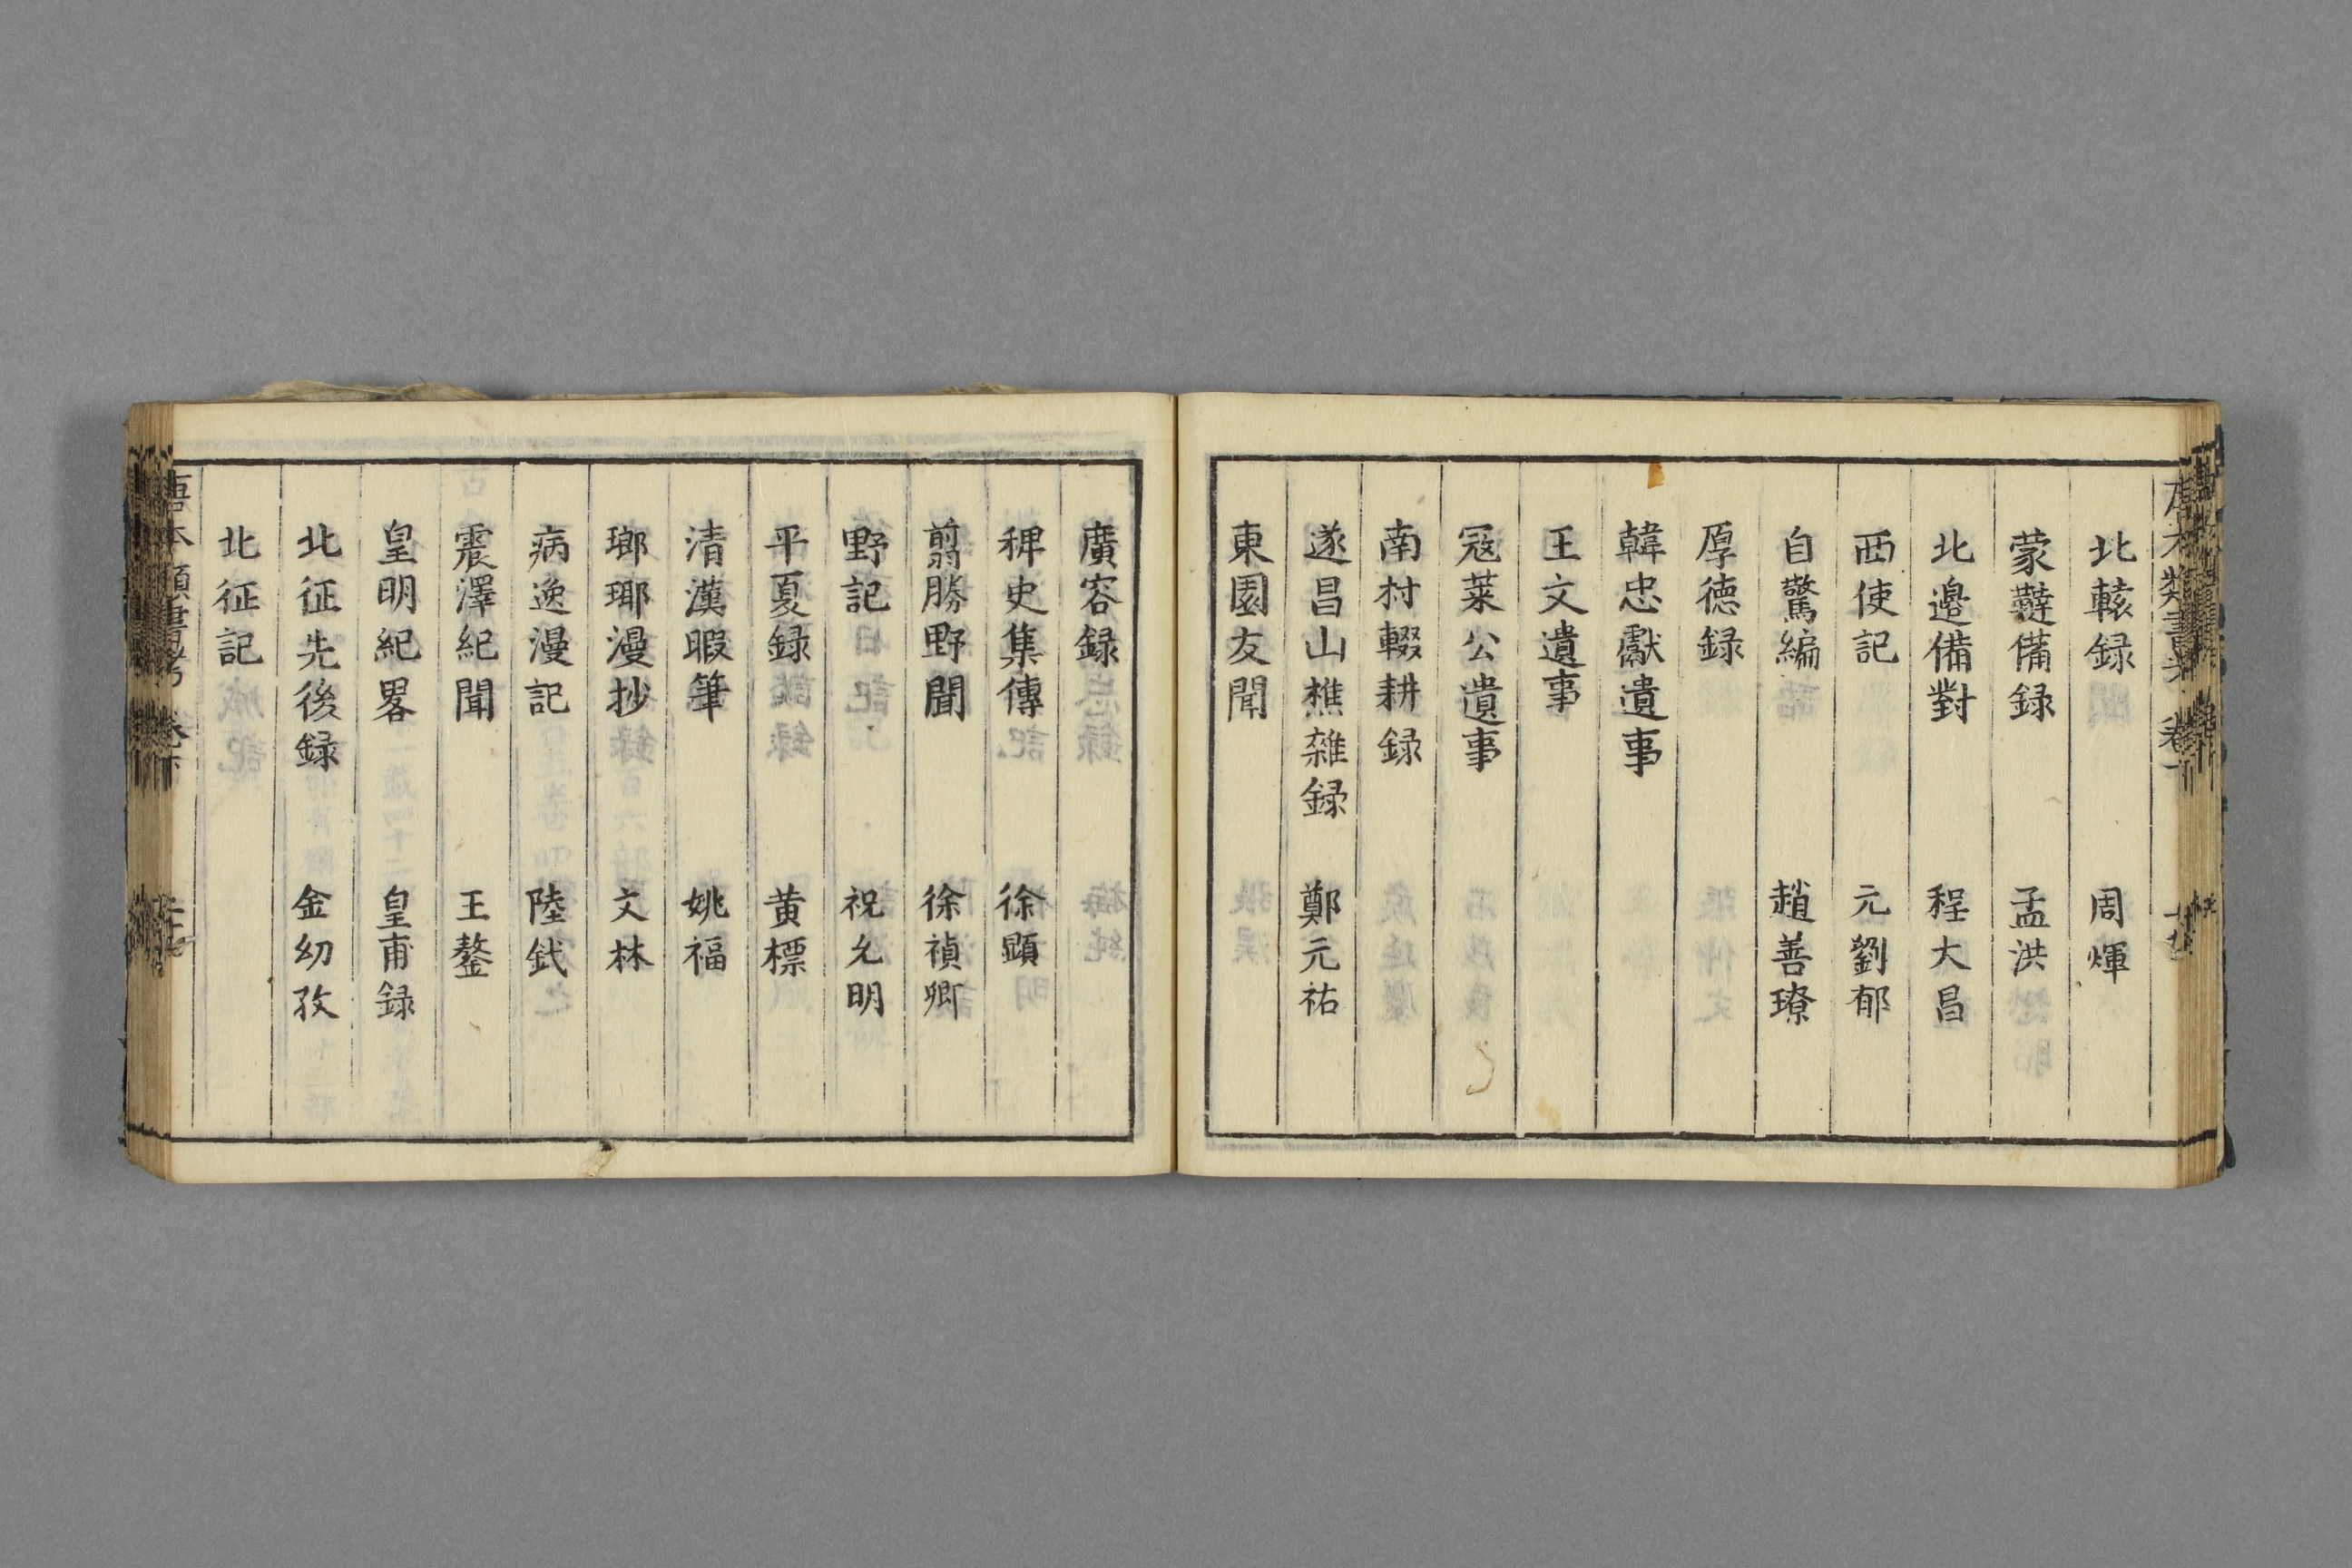 北轅録 周煇
蒙韃備録 孟洪
北邊備對 程大昌
西使記 元劉郁
自驚編 趙善璙
厚徳録
韓忠獻遺事
王文遺事
冦萊公遺事
南村輟耕録
遂昌山樵雜録 鄭元祐
東園友聞
廣客録
稗史集傳 徐顕
翦勝野聞 徐禎卿
野記 祝允明
平夏録 黄標
清溪暇筆 姚福
瑯瑘漫抄 文林
病逸漫記 陸釴
震澤紀聞 王鏊
皇明紀畧 皇甫録
北征先後録 金幼孜
北征記